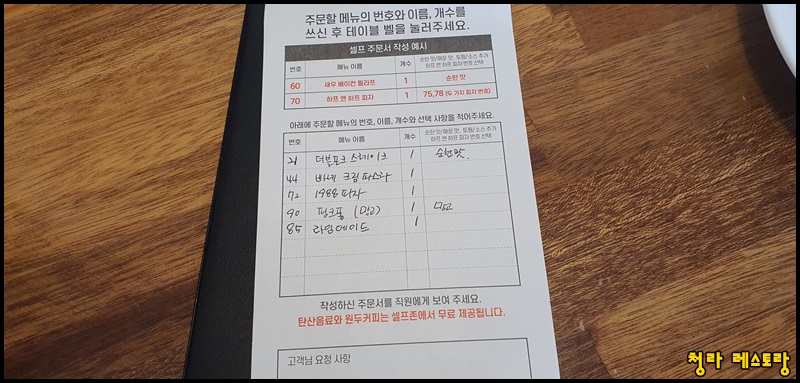 주문할 메뉴의 번호와 이름, 개수를
쓰신 후 테이블 벨을 눌러주세요.
셀프 주문서 작성 예시
번호 메뉴 이름 개수 순한 맛/매운 맛, 토핑/소스 추가
하프 앤 하프 피자 번호 선택
60 새우 베이컨 필라프 1 순한 맛
70 하프 앤 하프 피자 1 75,78 (두 가지 피자 번호)
아래에 주문할 메뉴의 번호, 이름, 개수와 선택 사항을 적어주세요.
번호 메뉴 이름 개수 순한 맛/매운 맛, 토핑/소스 추가
하프 앤 하프 피자 번호 선택
21 더블포크 스테이크 1 순한맛
44 빠네 크림 파스타 1
72 1988 피자 1
90 핑크퐁 (망고) 1 망고
85 라임에이드 1
작성하신 주문서를 직원에게 보여 주세요.
탄산음료와 원두커피는 셀프존에서 무료 제공됩니다.
고객님 요청 사항
청라 레스토랑